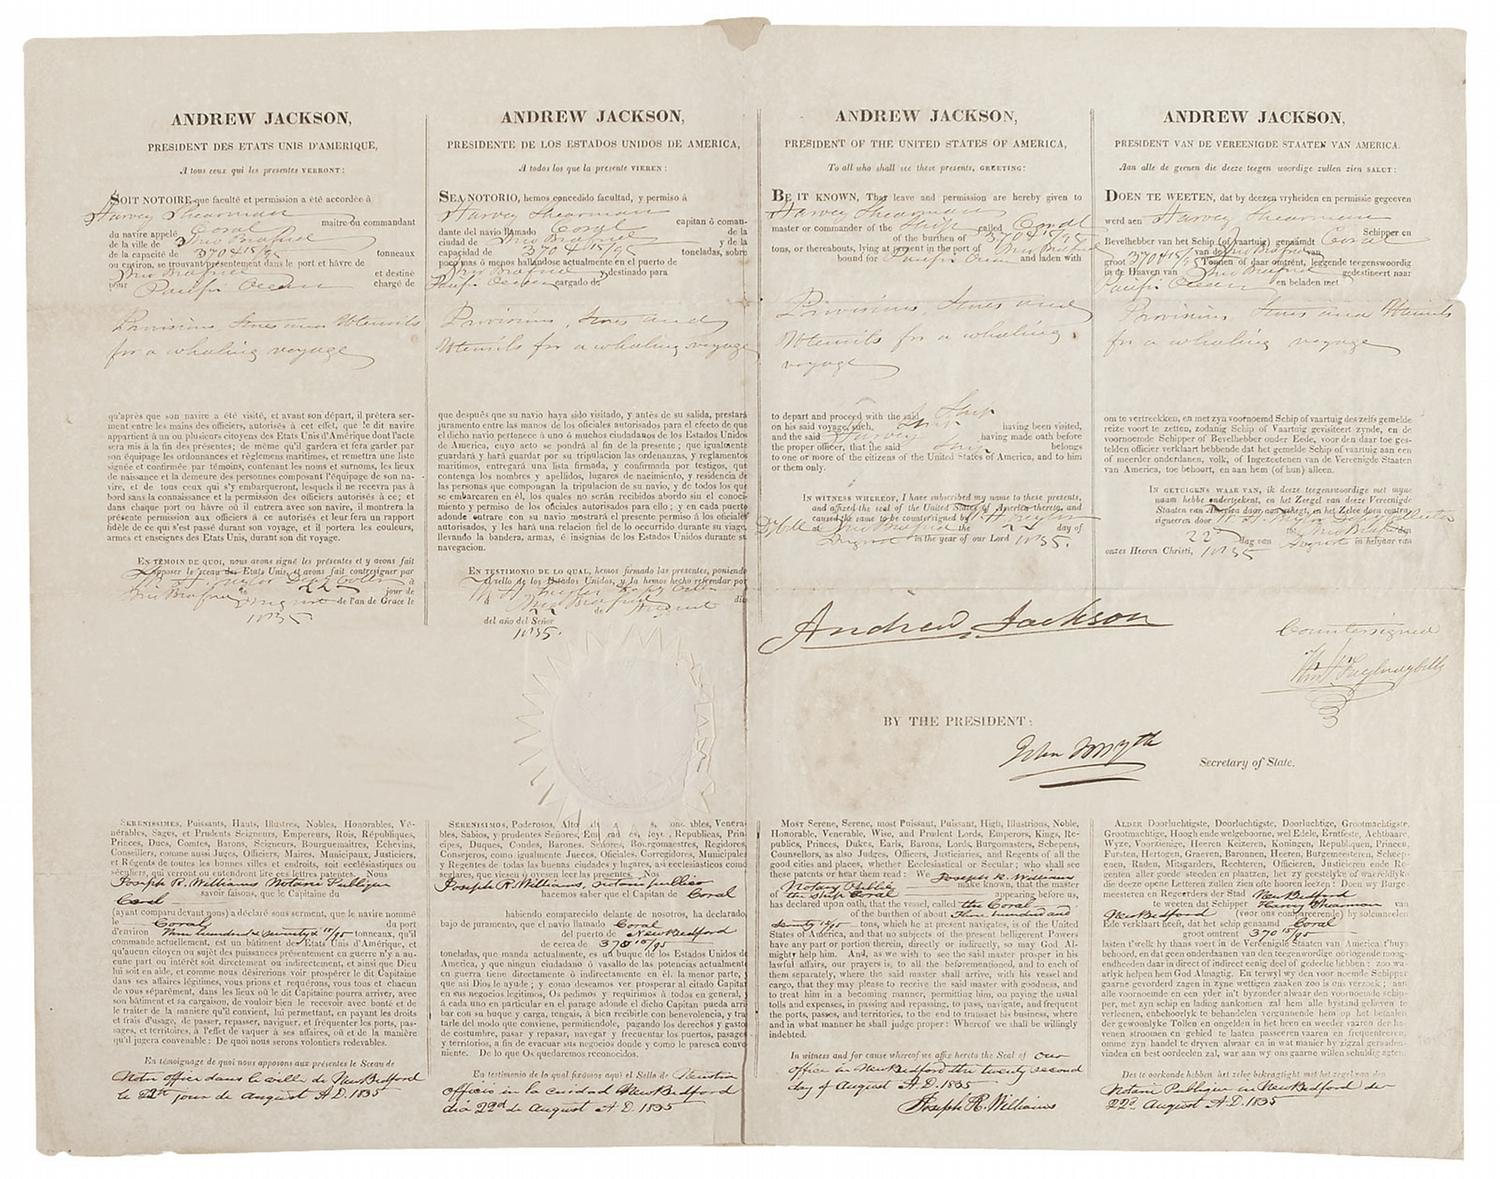 ANDREW JACKSON,
PRESIDENT DES ETATS UNIS D'AMERIQUE,
A tous ceux qui les presentes VERRONT:
SOIT NOTOIRE que faculté et permission a été accordée à
Harvey Shearman maitre ou commandant
du navire appelé Coral
de la ville de New Bedford
de la capacité de 370 & 15/95 tonneaux
ou environ, se trouvant présentement dans le port et hàvre de
New Bedford et destiné
pour Pacific Ocean chargé de
Provisions, Stores and Utensils
for a whaling voyage
qu'après que son navire a été visité, et avant son départ, il prêtera ser-
ment entre les mains des officiers, autorisés à cet effet, que le dit navire
appartient à un ou plusieurs citoyens des Etats Unis d'Amérique dont l'acte
sera mis à la fin des présentes; de même qu'il gardera et fera garder par
son équipage les ordonnances et règlemens maritimes, et remettra une liste
signée et confirmée par témoins, contenant les noms et surnoms, les lieux
de naissance et la demeure des personnes composant l'équipage de son na-
vire, et de tous ceux qui s'y embarqueront, lesquels il ne recevra pas à
bord sans la connaissance et la permission des officiers autorisés à ce; et
dans chaque port ou hàvre où il entrera avec son navire, il montrera la
présente permission aux officiers à ce autorisés et leur fera un rapport
fidèle de ce qui s'est passé durant son voyage, et il portera les couleurs,
armes et enseignes des Etats Unis, durant son dit voyage.
EN TÉMOIN DE QUOI, nous avons signé les présentes et y avons fait
apposer le sceau des Etats Unis, et avons fait contresigner par
à
New Bedford le 22 jour de
August de l'an de Grace le
1835
SERENISSIMES, Puissants, Hauts, Illustres, Nobles, Honorables, Vé-
nérables, Sages, et Prudents Seigneurs, Empereurs, Rois, Républiques,
Princes, Ducs, Comtes, Barons, Seigneurs, Bourguemaitres, Echevins,
Conseillers, comme aussi Juges, Officiers, Maires, Municipaux, Justiciers,
et Régents de toutes les bonnes villes et endroits, soit ecclésiastiques ou
séculiers, qui verront ou entendront lire ces lettres patentes. Nous
Joseph R. Williams Notaire Publique
savoir faisons, que le Capitaine du
Coral
(ayant comparu devant nous) a déclaré sous serment, que le navire nommé
le Coral du port
d'environ Three hundred & seventy & 15/95 tonneaux, qu'il
commande actuellement, est un bâtiment des Etats Unis d'Amérique, et
qu'aucun citoyen ou sujet des puissances présentement en guerre n'y a au-
cune part ou intérêt soit directement ou indirectement, et ainsi que Dieu
lui soit en aide, et comme nous désirerions voir prospérer le dit Capitaine
dans ses affaires légitimes, vous prions et requérons, vous tous et chacun
de vous séparément, dans les lieux où le dit Capitaine pourra arriver, avec
son bâtiment et sa cargaison, de vouloir bien le recevoir avec bonté et
le traiter de la manière qu'il convient, lui permettant, en payant les droits
et frais d'usage, de passer, repasser, naviguer, et fréquenter les ports, pas-
sages, et territoires, à l'effet de vaquer à ses affaires, où et de la manière
qu'il jugera convenable: De quoi nous serons volontiers redevables.
En témoignage de quoi nous apposons aux présentes le Sceau de
Notre office dans la ville de New Bedford
le 22d jour de August A.D. 1835
ANDREW JACKSON,
PRESIDENTE DE LOS ESTADOS UNIDOS DE AMERICA,
A todos los que la presente VIEREN:
SEA NOTORIO, hemos concedido facultad, y permiso á
Harvey Shearman capitan ó coman-
dante del navio llamado Coral de la
ciudad de New Bedford y de la
capacidad de 370 & 15/95 toneladas, sobre
poco mas ó menos hallandose actualmente en el puerto de
New Bedford y destinado para
Pacific Ocean cargado de
Provisions, Stores and
Utensils for a whaling voyage
que después que su navio haya sido visitado, y antés de su salida, prestará
juramento entre las manos de los oficiales autorizados para el efecto de que
el dicho navio pertenece à uno ó muchos ciudadanos de los Estados Unidos
de America, cuyo acto se pondrá al fin de la presente; que igualmente
guardará y hará guardar por su tripulacion las ordenanzas, y reglamentos
maritimos, entregará una lista firmada, y confirmada por testigos, que
contenga los nombres y apellidos, lugares de nacimiento, y residencia de
las personas que compongan la tripulacion de su navio, y de todos los que
se embarcaren en él, los quales no serán recibidos abordo sin el conoci-
miento y permiso de los oficiales autorizados para ello; y en cada puerto
adonde entrare con su navio mostrará el presente permiso á los oficiales
autorisados, y les hará una relacion fiel de lo ocurrido durante su viage,
llevando la bandera, armas, é insignias de los Estados Unidos durante su
navegacion.
EN TESTIMONIO DE LO QUAL, hemos firmado las presentes, poniendo
el sello de los Estados Unidos, y la hemos hecho refrendar por
á New Bedford dia
22 de August
del año del Señor
1835.
SERENISIMOS, Poderosos,
bles, Sabios, y prudentes Señores, Republicas, Prin-
cipes, Duques, Condes, Barones. Señores, Bourgomaestres, Regidores,
Consejeros, como igualmente Jueces, Oficiales, Corregidores, Municipales
y Regentes de todas las buenas ciudades y lugares, ya eclesiasticos como
seglares, que viesen ó oyesen leer las presentes. Nos
Joseph R. Williams, notario publico
hacemos saber que el Capitan de Coral
habiendo comparecido delante de nosotros, ha declarado
bajo de juramento, que el navio llamado Coral
del puerto de New Bedford
de cerca de 370 15/95
toneladas, que manda actualmente, es un buque de los Estados Unidos de
America, y que ningun ciudadano ó vasallo de las potencias actualmente
en guerra tiene directamente ó indirectamente en él. la menor parte, y
que asi Dios le ayude; y como deseamos ver prosperar al citado Capitan
en sus negocios legitimos, Os pedimos y requirimos à todos en general, y
á cada uno en particular en el parage adonde el dicho Capitan pueda arri-
bar con su buque y carga, tengais, á bien recibirle con benevolencia, y tra-
tarle del modo que conviene, permitiendole, pagando los derechos y gastos
de costumbre, pasar y repasar, navegar y frecuentar los puertos, pasages
y territorios, a fin de evacuar sus negocios donde y como le paresca conve-
niente. De lo que Os quedaremos reconocidos.
En testimonio de lo qual fixamos aqui el Sello de Nuestra
Officio in la cuidad New Bedford
dia 22d de August A.D. 1835
ANDREW JACKSON,
PRESIDENT OF THE UNITED STATES OF AMERICA,
To all who shall see these presents, GREETING:
BE IT KNOWN, That leave and permission are hereby given to
Harvey Shearman
master or commander of the Ship called Coral
of the burthen of 370 & 15/95
tons, or thereabouts, lying at present in the port of New Bedford
bound for Pacific Ocean and laden with
Provisions, Stores and
Utensils for a whaling
voyage
to depart and proceed with the said Ship
on his said voyage, such Ship having been visited,
and the said Harvey having made oath before
the proper officer, that the said Ship belongs
to one or more of the citizens of the United States of America, and to him
or them only.
IN WITNESS WHEREOF, I have subscribed my name to these presents,
and affixed the seal of the United States of America thereto, and
caused the same to be countersigned by
at New Bedford the 22 day of
August in the year of our Lord 1835.
Andrew Jackson
BY THE PRESIDENT:
John Forsyth
Secretary of State.
MOST Serene, Serene, most Puissant, Puissant, High, Illustrious, Noble,
Honorable, Venerable, Wise, and Prudent Lords, Emperors, Kings, Re-
publics, Princes, Dukes, Earls, Barons, Lords, Burgomasters, Schepens,
Counsellors, as also Judges, Officers, Justiciaries, and Regents of all the
good cities and places, whether Ecclesiastical or Secular; who shall see
these patents or hear them read: We Joseph R. Williams
Notary Public make known, that the master
of the ship Coral appearing before us,
has declared upon oath, that the vessel, called the Coral
of the burthen of about Three hundred and
seventy 15/95 tons, which he at present navigates, is of the United
States of America, and that no subjects of the present belligerent Powers
have any part or portion therein, directly or indirectly, so may God Al-
mighty help him. And, as we wish to see the said master prosper in his
lawful affairs, our prayers is, to all the beforementioned, and to each of
them separately, where the said master shall arrive, with his vessel and
cargo, that they may please to receive the said master with goodness, and
to treat him in a becoming manner, permitting him, on paying the usual
tolls and expenses, in passing and repassing, to pass, navigate, and frequent
the ports, passes, and territories, to the end to transact his business, where
and in what manner he shall judge proper: Whereof we shall be willingly
indebted.
In witness and for cause whereof we affix hereto the Seal of our
office in New Bedford the twenty second
day of August A.D. 1835
Joseph R. Williams
ANDREW JACKSON,
PRESIDENT VAN DE VEREENIGDE STAATEN VAN AMERICA.
Aan alle de geenen die deeze teegen woordige zullen zien SALUT:
DOEN TE WEETEN, dat by deezen vryheiden en permissie gegeeven
werd aen Harvey Shearman Schipper en
Bevelhebber van het Schip (of vaartuig) genaamdt Coral
van de New Bedford van
groot 370 & 15/95 Tonnen of daar omtrént, leggende teegenswoordig
in de Haaven van New Bedford gedestineert naar
Pacific Ocean en beladen met
Provisions, Stores and Utensils
for a whaling voyage
om te vertreekken, en met zyn voornoemd Schip of vaartuig des zelfs gemelde
reize voort te zetten, zodanig Schip of Vaartuig geviseteert zynde, en de
voornoemde Schipper of Bevelhebber onder Eede, voor den daar toe ges-
telden officier verklaart hebbende dat het gemelde Schip of vaartuig aan een
of meerder onderdanen, volk, of Ingezeetenen van de Vereenigde Staaten
van America, toe behoort, en aan hem (of hun) alleen.
IN GETUIGENS WAAR VAN, ik deeze teegenswoordige met myne
naam hebbe ondertekent, en het Zeegel van deeze Vereenigde
Staaten van America daar aan gehegt, en het Zelve doen contra-
signeeren door
te New Bedford den
22d dag van August in het jaar van
onzes Heeren Christi, 1835
Countersigned
ALDER Doorluchtigste, Doorluchtigste, Doorluchtige, Grootmachtigste,
Grootmachtige, Hoogh ende welgeboorne, wel Edele, Ernfeste, Achtbaare,
Wyze, Voorzienige, Heeren Keizeren, Koningen, Republiquen, Princen,
Fursten, Hertogen, Graeven, Baronnen, Heeren, Burgemeesteren, Scheep-
enen, Raden, Mitsgarders, Rechteren, Officieren, Justicieren ende Re-
genten aller goede steeden en plaatzen, het zy geestelyke of waereldlyke
die deeze opene Letteren zullen zien ofte hooren leezen: Doen wy Burge-
meesteren en Regeerders der Stad New Bedford
te weeten dat Schipper Harvey Shearman van
New Bedford (voor ons compareerende) by solemneelen
Ede verklaart heeft, dat het schip genaamd Coral
groot omtrent 370 15/95
lasten t'welk hy thans voert in de Vereenigde Staaten van America t'huys
behoord, en dat geen onderdaanen van den teegenwoordige oorlogende moog-
endheeden daar in direct of indirect eenig deel of gedeelte hebben: zoo wa-
arlyk helpen hem God Almagtig. En terwyl wy den voor noemde Schipper
gaarne gevorderd zagen in zyne wettigen zaaken zoo is ons verzoek; aan
alle voornoemde en een yder in't byzonder alwaar den voornoemde schip-
per, met zyn schip en lading aankomen zal hem alle bystand te
verleenen, enbehoorlyk te behandelen vergunnende hem op het betaalen
der gewoonlyke Tollen en ongelden in het heen en weeder vaaren der ha-
venen stroomen en gebied te laaten passeeren vaaren en frequenteeren,
omme zyn handel te dryven alwaar en in wat manier hy zigzal geraaden-
vinden en best oordeelen zal, war aan wy ons gaarne willen schuldig agten.
Des te oorkonde hebben het zeleg bekragtigt met het zegel van den
Notarie Publique in New Bedford de
22d August A.D. 1835